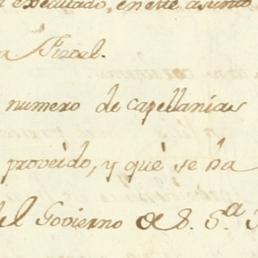 executado, en este asunto
Fiscal.
numero de capellanias
proveido, y que se ha
del Govierno de S. S.ª